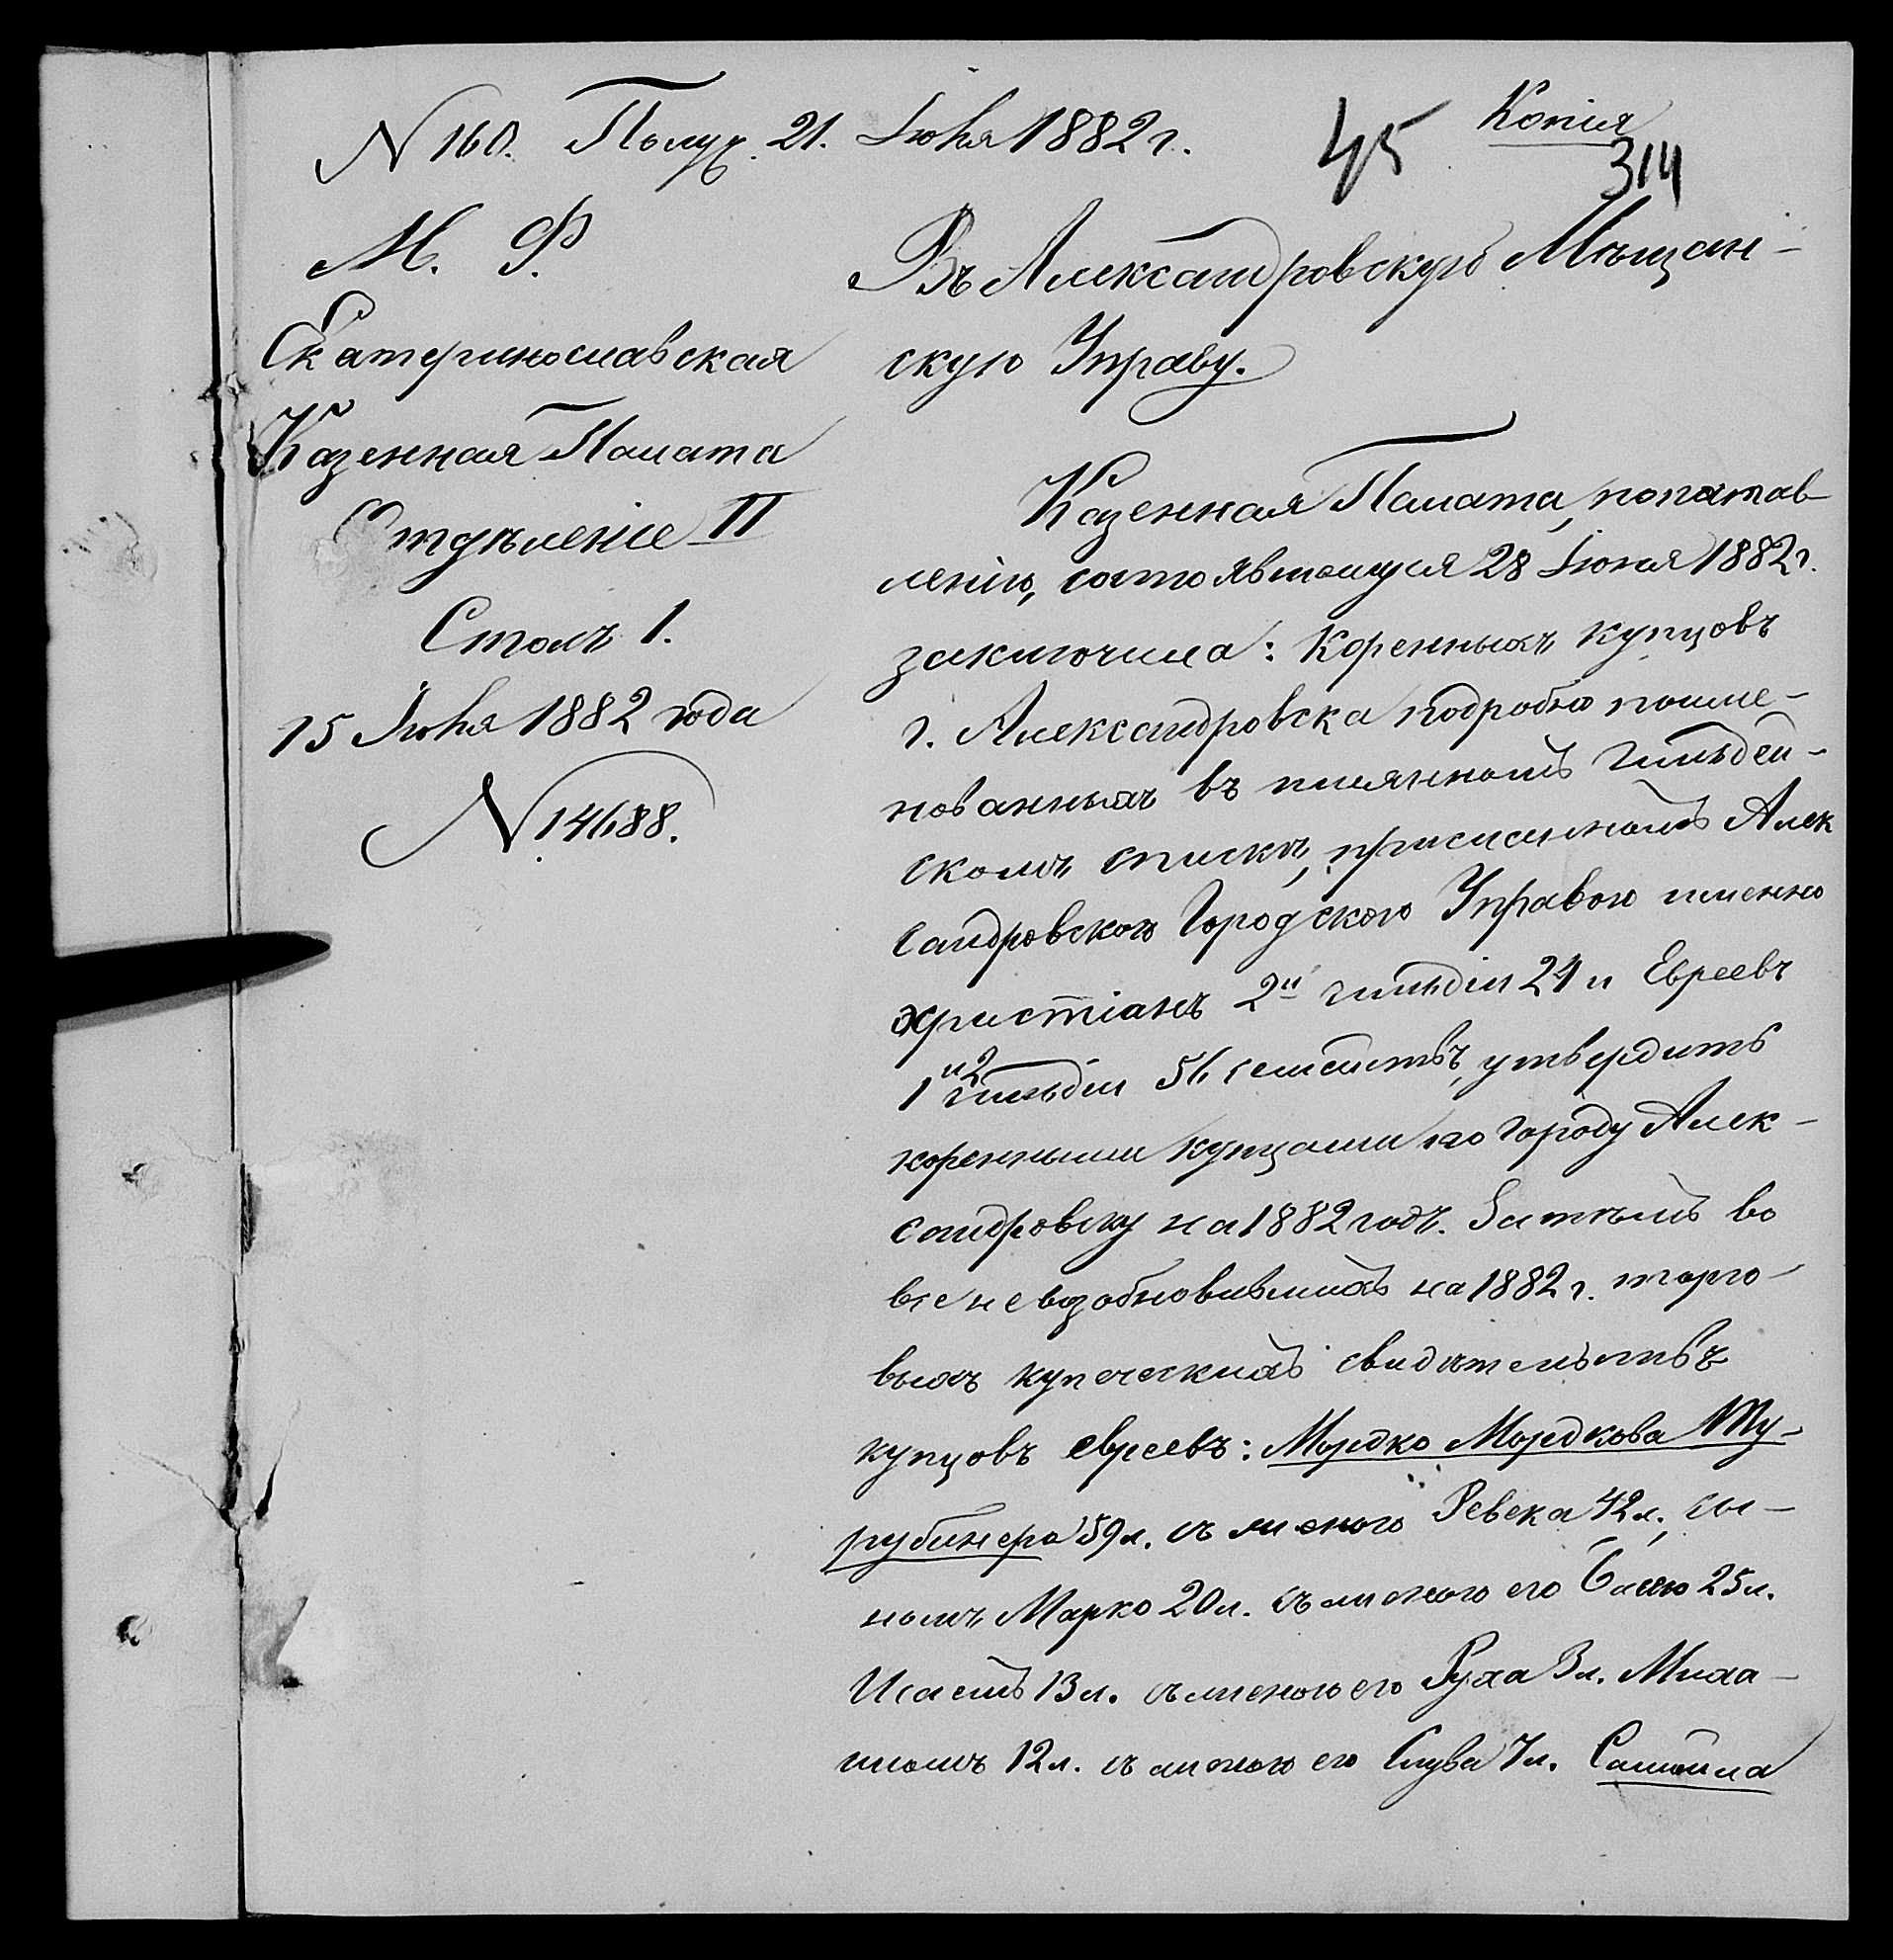 N 160. Получ. 21. Іюня 1882 г.
45
Копія
314
М. Ф.
Екатеринославская
Казенная Палата
Отдѣленіе II
Столъ 1.
15 Іюня 1882 года
N 14688.
Въ Александровскую Мѣщан-
скую Управу.
Казенная Палата, по
ленію, состоявшемуся 28 Іюня 1882 г.
заключила: Коренныхъ купцовъ
г. Александровска подробно поиме-
нованныхъ въ имянномъ гильдей-
скомъ спискѣ, присланномъ Алек
сандровскою Городскою Управою именно
христіанъ 2й гильдіи 24 и Евреевъ
1 и 2 гильдіи 56 семействъ, утвердить
коренными купцами по городу Алек-
сандровску на 1882 годъ. Затѣмъ во
все невозобновившихъ на 1882 г. торго-
выхъ купеческихъ свидѣтельствъ
купцовъ евреевъ: Мордко Мордкова Ту-
рубинера 59 л. съ женою Ревека 42 л., сы-
номъ Марко 20 л. съ женою его 25 л.
13 л. съ женою его Руха 3 л. Миха-
иломъ 12 л. съ женою его 7 л. Самойла